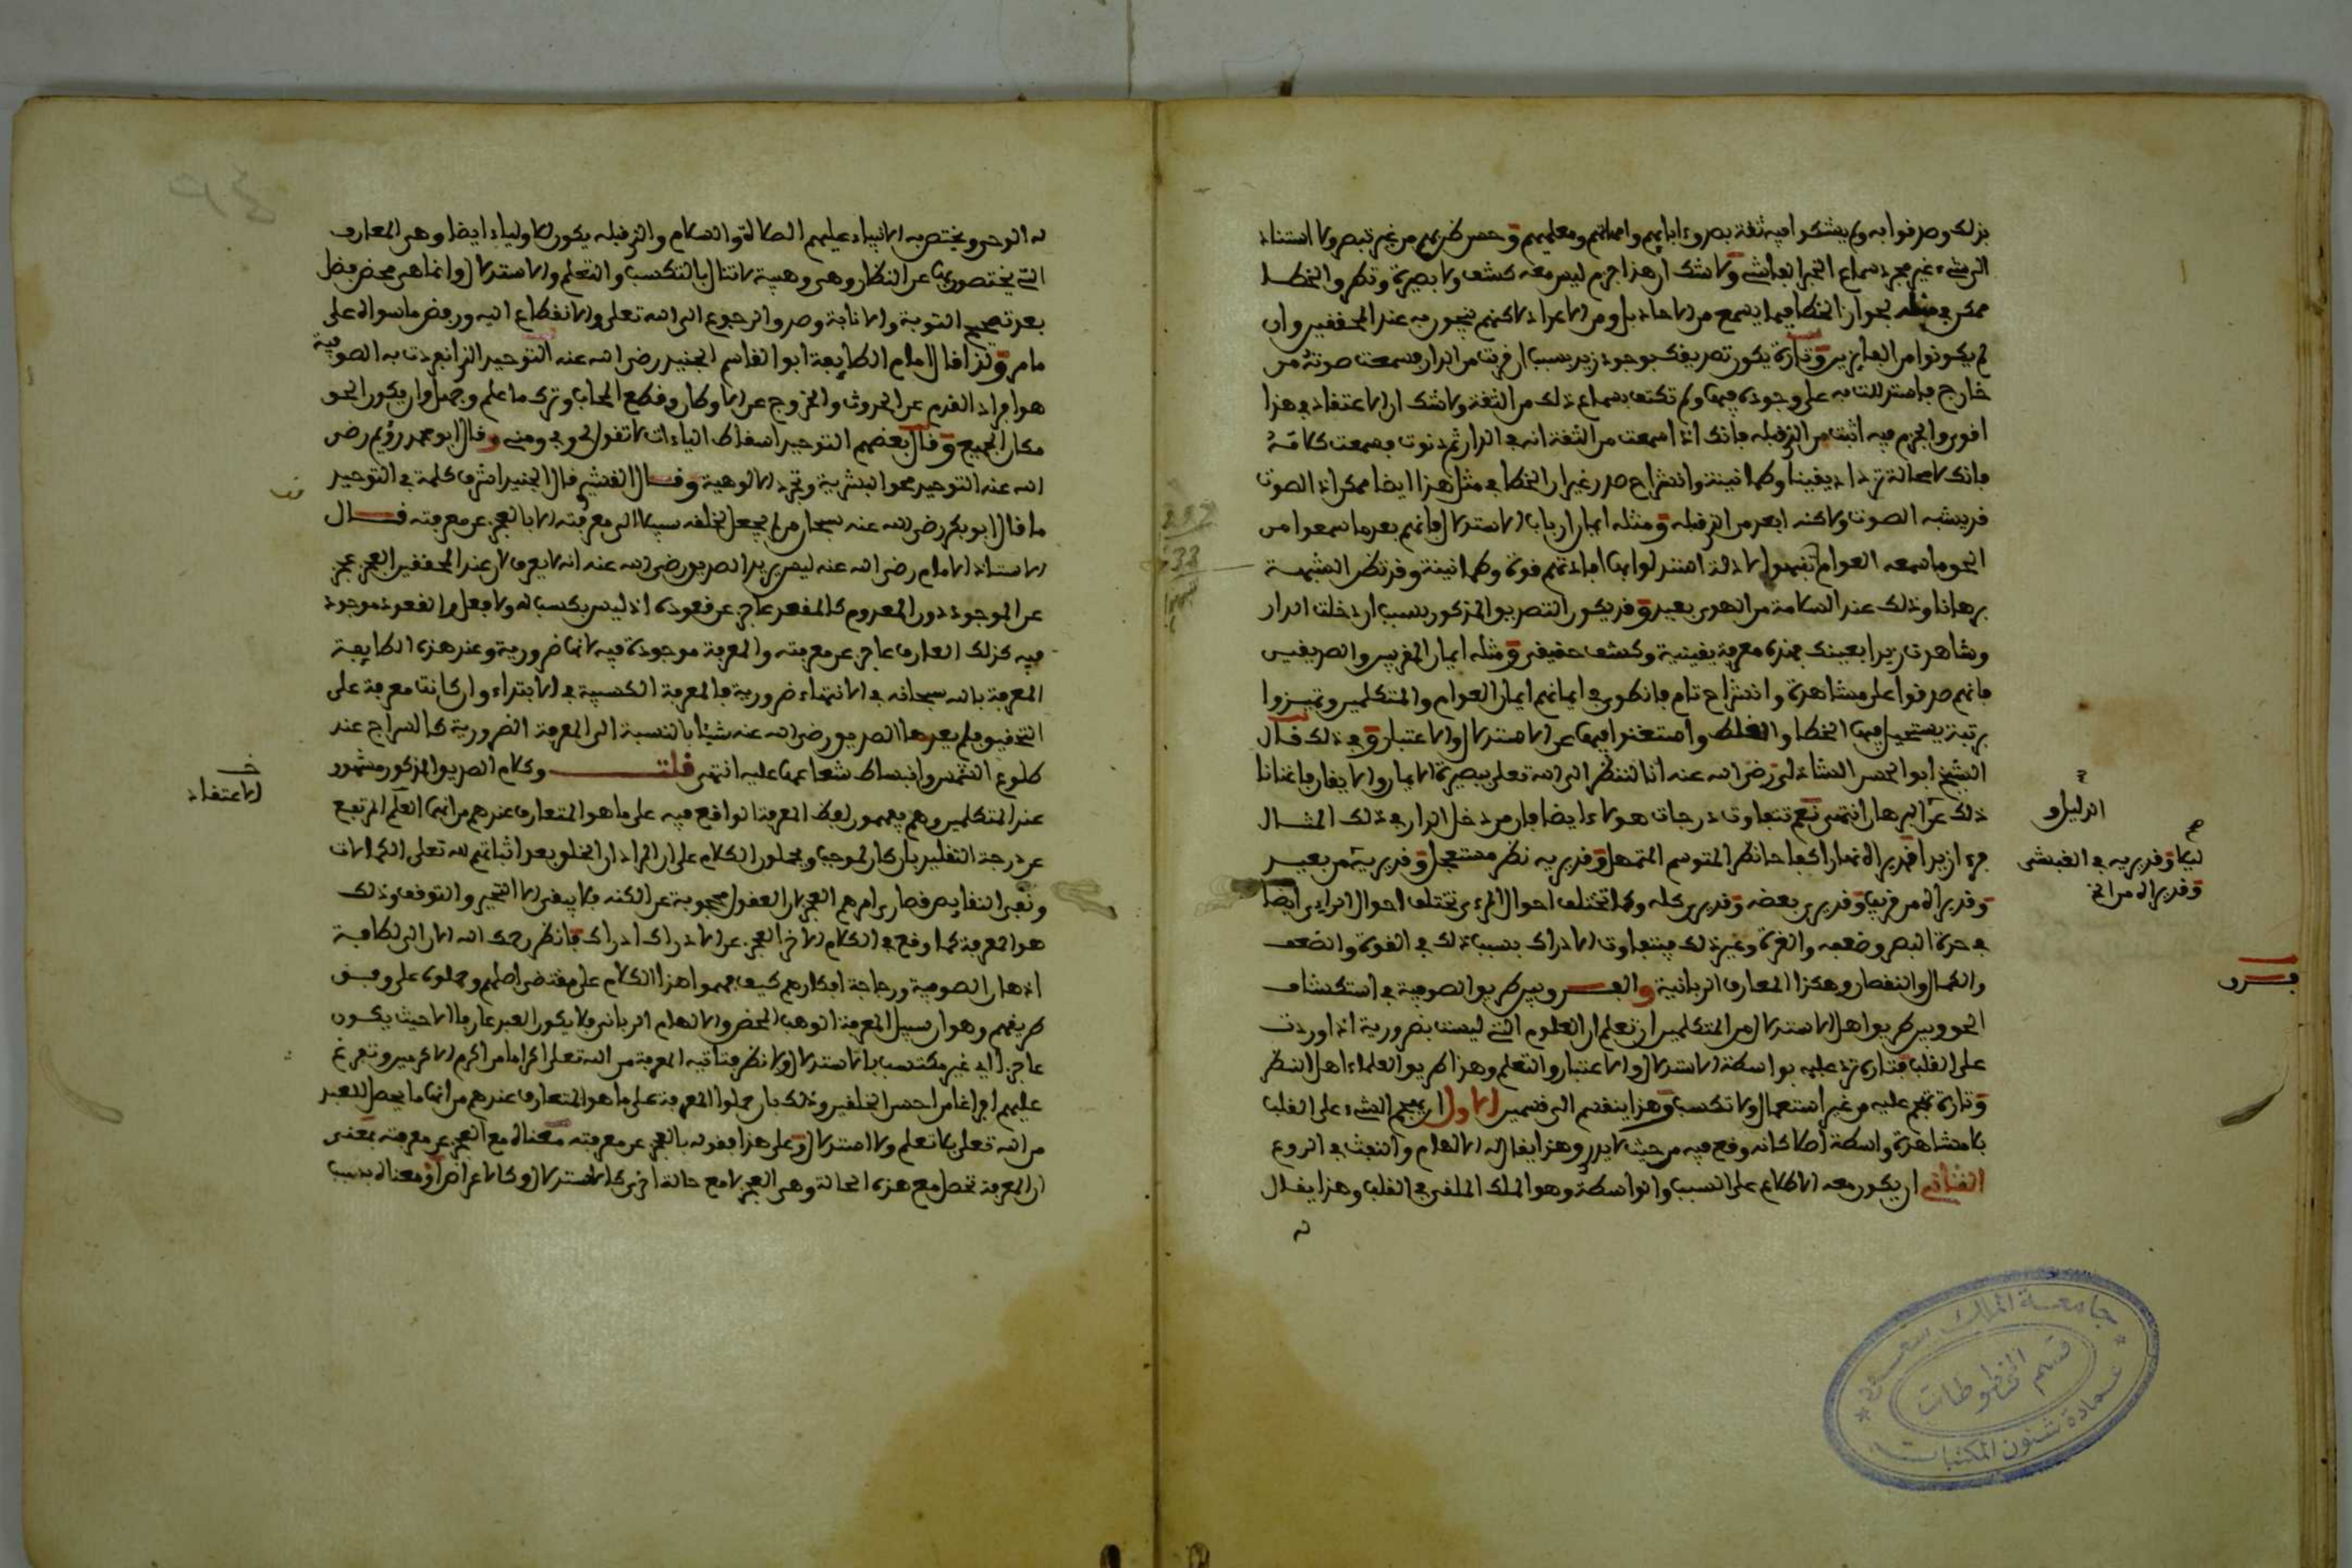 بذلك وصدقوا به ولم يشكوا فيه ثقة بصدق ابايهم وامهاتهم ومعلميهم وحسن ظن بهم من غير تبصر ولا استناد
الى شيء غير مجرد سماع الخبر الفاشي ولا شك ان هذا جزم ليس معه كشف ولا بصيرة وتطرق الخطا
ممكن في مثله لجواز الخطا فيما يسمع من الاحاد بل ومن الاعداد لاكنهم ينجون به عند المحققين وان
لم يكونوا من الفايزين وتارة يكون تصديقك بوجود زيد بسبب ان قربت من الدار فسمعت صوته من
خارج فاستدللت به على وجوده فيها ولم تكتف بسماع ذلك من الثقة ولا شك ان الاعتقاد في هذا
اقوى والجزم فيه اثبت من الذي قبله فانك اذا سمعت من الثقة انه في الدار ثم دنوت فسمعت كلامه
فانك لا محالة تزداد يقينا وطمانينة وانشراح صدر غير ان الخطا في مثل هذا ايضا ممكن اذ الصوت
قد يشبه الصوت ولاكنه ابعد من الذي قبله ومثله ايمان ارباب الاستدلال فانهم بعد ما سمعوا من
الحق ما سمعه العوام تفهموا الادلة استدلوا بها افادتهم قوة وطمانينة وقد تظن الشبهة
برهانا وذلك عند السلامة من الهوى بعيد وقد يكون التصديق المذكور بسبب ان دخلت الدار
وشاهدت زيدا بعينك فهذه معرفة يقينية وكشف حقيقي ومثله ايمان المقربين والصديقين
فانهم صدقوا على مشاهدة وانشراح تام فانطوى في ايمانهم ايمان العوام والمتكلمين وتميزوا
برتبة يستحيل فيها الخطا والغلط واستغنوا فيها عن الاستدلال والاعتبار وفي ذلك قال
الشيخ ابو الحسن الشاذلي رضي الله عنه انا لننظر الى الله تعلى ببصيرة الايمان والايقان فاغنانا
ذلك عن البرهان انتهى نعم تتفاوت درجات هولاء ايضا فان من دخل الدار في ذلك المثال
فراى زيدا قد يراه نهارا كفاحا نظر المتوسم المتمهل وقد يريه نظر مستعجل وقد يريه من بعيد
وقد يراه من قريب وقد يرى بعضه وقد يرى كله وكما تختلف احوال المرءى تختلف احوال الراءى ايضا
في حدة البصر وضعفه والقرة وغير ذلك فيتفاوت الادراك بسبب ذلك في القوة والضعف
والكمال والنقصان وهكذا المعارف الربانية والفرق بين طريق الصوفية في استكشاف
الحق وبين طريق اهل الاستدلال من المتكلمين ان تعلم ان العلوم التي ليست بضرورية اذا وردت
على القلب فتارة ترد عليه بواسطة الاستدلال والاعتبار والتعلم وهذا طريق العلماء اهل النظر
وتارة تهجم عليه من غير استعمال ولا تكسب وهذا ينقسم الى قسمين الاول ان يهجم الشيء على القلب
بلا مشاهدة واسطة اصلا كانه وقع فيه من حيث لا يدري وهذا يقال له الالهام والنفث في الروع
الثاني ان يكون معه الاطلاع على السبب والواسطة وهو الملك الملقي في القلب وهذا يقال
له
الدليل و
صح
ليلا وقد يريه في الغبش
وقد يراه من الخ
فرق
جامعة الملك سعود
قسم المخطوطات
عمادة شئون المكتبات
له الوحي ويختص به الانبياء عليهم الصلاة والسلام والذي قبله يكون للاولياء ايضا وهي المعارف
التي يختصون بها عن النظار وهي وهبية لا تنال بالتكسب والتعلم والاستدلال وانما هي محض فضل
بعد تصحيح التوبة والانابة وصدق الرجوع الى الله تعلى والانقطاع اليه ورفض ما سواه على
ما مر ولذا قال امام الطايفة ابو القاسم الجنيد رضي الله عنه التوحيد الذي انفردت به الصوفية
هو افراد القدم عن الحدوث والخروج عن الاوطان وقطع المحاب وترك ما علم وجهل وان يكون الحق
مكان الجميع وقال بعضهم التوحيد اسقاط الياءات لا تقول لي وبي ومني وقال ابو محمد رويم رضي
الله عنه التوحيد محو البشرية وتجرد الالوهية وقال القشيري قال الجنيد اشرف كلمة في التوحيد
ما قال ابو بكر رضي الله عنه سبحان من لم يجعل لخلقه سبيلا الى معرفته الا بالعجز عن معرفته قال
الاستاذ الامام رضي الله عنه ليس يريد الصديق رضي الله عنه انه لا يعرف لان عند المحققين العجز عجز
عن الموجود دون المعدوم كالمقعد عاجز عن قعوده اذ ليس بكسب له ولا فعل والقعود موجود
فيه كذلك العارف عاجز عن معرفته والمعرفة موجودة فيه لانها ضرورية وعند هذه الطايفة
المعرفة بالله سبحانه في الانتهاء ضرورية فالمعرفة الكسبية في الابتداء وان كانت معرفة على
التحقيق فلم يعدها الصديق رضي الله عنه شيئا بالنسبة الى المعرفة الضرورية كالسراج عند
طلوع الشمس وانبساط شعاعها عليه انتهى قلت وكلام الصديق المذكور مشهور
عند المتكلمين وهم يفهمون لفظ المعرفة الواقع فيه على ما هو المتعارف عندهم من انها العلم المرتفع
عن درجة التقليد بان كان لموجب ويحملون الكلام على ان المراد ان الخلق بعد اثباتهم لله تعلى الكمالات
ونفي النقايص قصارى امرهم العجز لان العقول محجوبة عن الكنه فلا يبقى الا التحير والتوقف وذلك
هو المعرفة كما وقع في الكلام الاخر العجز عن الادراك ادراك فانظر رحمك الله الان الى لطافة
اذهان الصوفية ورجاحة افكارهم كيف فهموا هذا الكلام على مقتضى اصلهم وحملوه على وفق
طريقهم وهو ان سبيل المعرفة الوهب المحض والالهام الرباني فلا يكون العبد عارفا الا حيث يكون
عاجزا اي غير مكتسب بلا استدلال ولا نظر فتاتيه المعرفة من الله تعلى اكراما من اكرم الاكرمين وتفرغ
عليهم افراغا من احسن الخلقين وذلك بان حملوا المعرفة على ما هو المتعارف عندهم من انها ما يحصل للعبد
من الله تعلى بلا تعلم ولا استدلال وعلى هذا فقوله بالعجز عن معرفته معناه مع العجز عن معرفته بمعنى
ان المعرفة تحصل مع هذه الحالة وهي العجز لا مع حالة اخرى كالاستدلال وكالاعراض او معناه بسبب
خـ
الاعتقاد